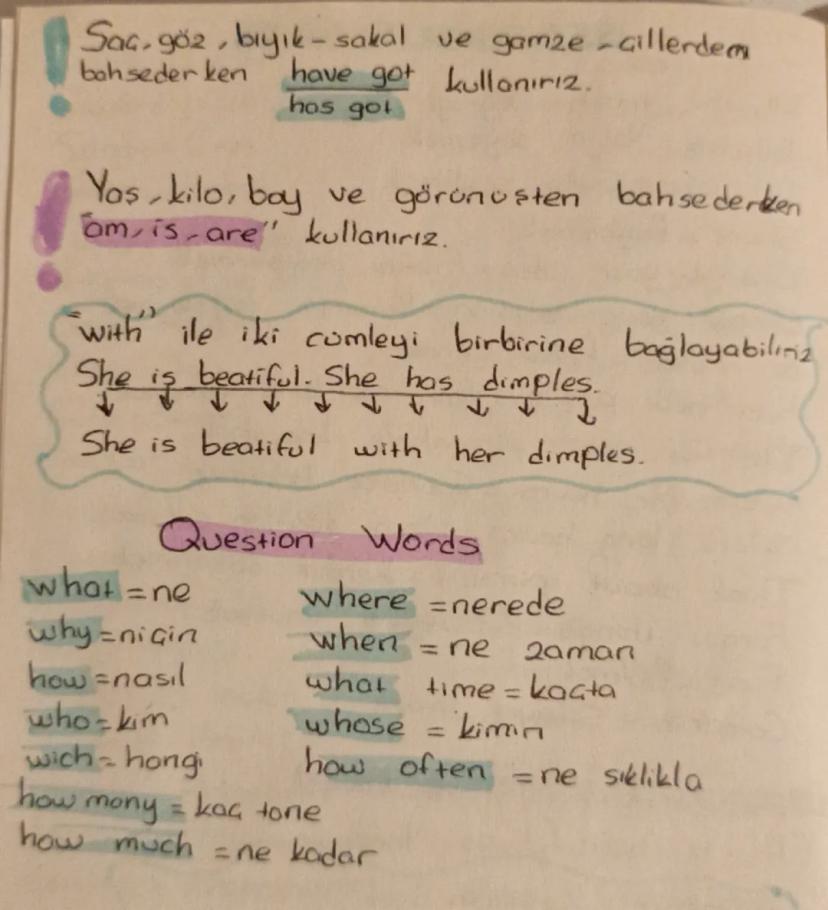 ! Saç, göz, bıyık-sakal ve gamze-çillerden
bahsederken have got kullanırız.
has got
! Yaş, kilo, boy ve görünüşten bahsederken
"am, is, are" kullanırız.
"with" ile iki cümleyi birbirine bağlayabiliriz
She is beatiful. She has dimples.
↓ ↓ ↓ ↓ ↓ ↓ ↓ ↓ ↓ ↓
She is beatiful with her dimples.
Question Words
what = ne
why = niçin
how = nasıl
who = kim
wich = hangi
how many = kaç tane
how much = ne kadar
where = nerede
when = ne zaman
what time = kaçta
whose = kimin
how often = ne sıklıkla